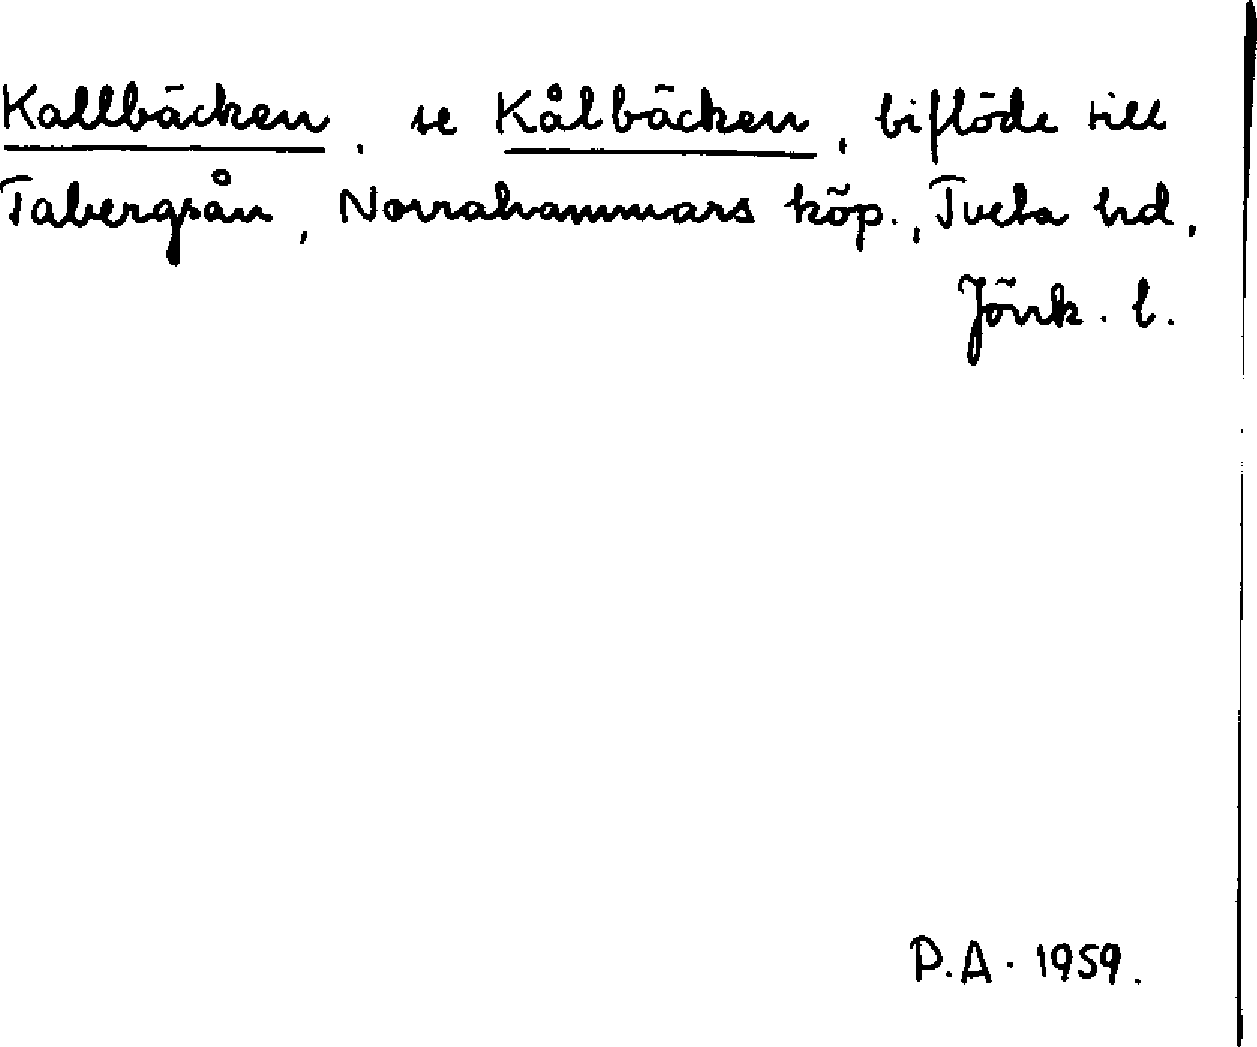 Kallbäcken, se Kålbäcken, biflöde till
Tabergsån, Norrahammars köp., Tveta hd,
Jönk. l.
P.A. 1959.